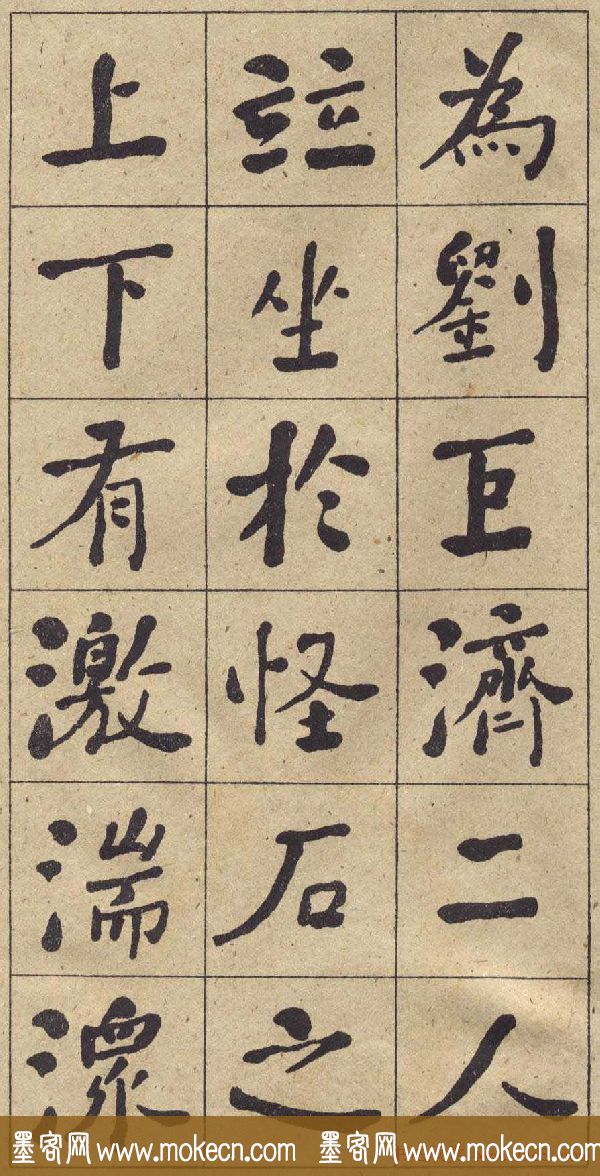 為劉巨濟二人
竝坐於怪石之
上下有激湍潨
墨客网 www.mokecn.com 墨客网 www.mokecn.com